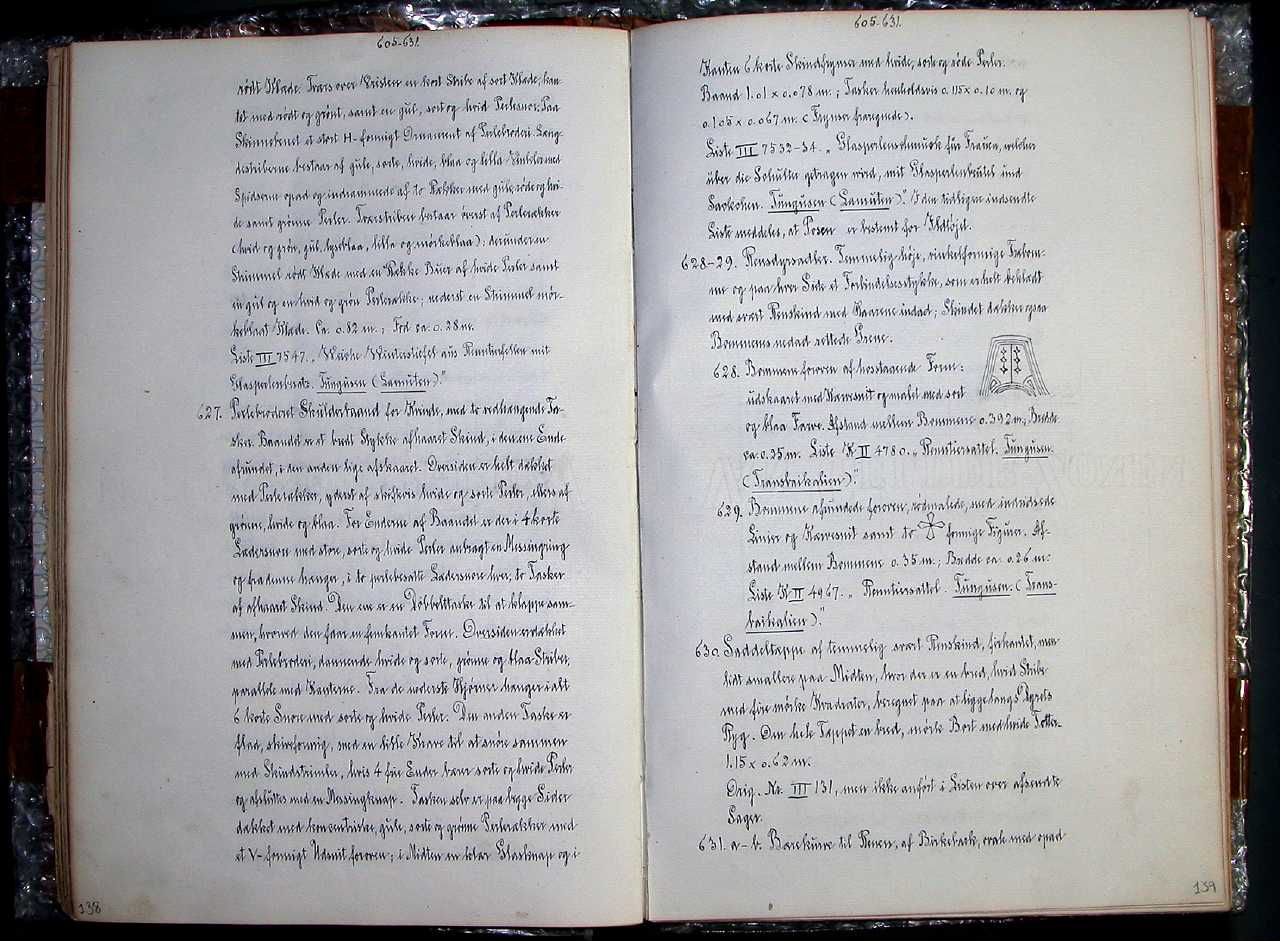 605-631.
rødt Klæde. Tværs over Vristen en kort Stribe af sort Klæde, kan-
tet med rødt og grønt, samt en gul, sort og hvid Perlesnor. Paa
Skinnebenet et stort H-formigt Ornament af Perlebroderi. Læng-
destriberne bestaar af gule, sorte, hvide, blaa og lilla Vinkler med
Spidserne opad og indrammede af to Rækker med gule, røde og hvi-
de samt grønne Perler. Tværstriben bestaar øverst af Perlerækker
(hvid og grøn, gul, lyseblaa, lilla og mørkeblaa); derunder en
Strimmel rødt Klæde med en Række Buer af hvide Perler samt
en gul og en hvid og grøn Perlerække; nederst en Strimmel mør-
keblaat Klæde. Ca. 0.82 m.; Fod ca. 0.28 m.
Liste III 7547. „Weiche Winterstiefel aus Renntierfellen mit
Glasperlenbesatz. Tungusen (Lamuten)."
627. Perlebroderet Skulderbaand for Kvinde, med to vedhængende Ta-
sker. Baandet er et bredt Stykke afhaaret Skind, i den ene Ende
afrundet, i den anden lige afskaaret. Oversiden er helt dækket
med Perlerækker, yderst af skiftevis hvide og sorte Perler, ellers af
grønne, hvide og blaa. For Enderne af Baandet er der i 4 korte
Lædersnore med store, sorte og hvide Perler anbragt en Messingring
og fra denne hænger, i to perlebesatte Lædersnore hver, to Tasker
af afhaaret Skind. Den ene er en Dobbelttaske til at klappe sam-
men, hvorved den faar en femkantet Form. Oversiden er dækket
med Perlebroderi, dannende hvide og sorte, grønne og blaa Striber,
parallele med Kanterne. Fra de nederste Hjørner hænger i alt
6 korte Snore med sorte og hvide Perler. Den anden Taske er
flad, skiveformig, med en lille Krave til at snøre sammen
med Skindstrimler, hvis 4 frie Ender bærer sorte og hvide Perler
og afsluttes med en Messingknap. Tasken selv er paa begge Sider
dækket med koncentriske, gule, sorte og grønne Perlerækker med
et V-formigt Udsnit foroven; i Midten en klar Glasknap og i
138
605-631.
Kanten 6 korte Skindfrynser med hvide, sorte og røde Perler.
Baand 1.01 x 0.078 m.; Tasker henholdsvis 0.115 x 0.10 m. og
0.105 x 0.067 m. (Frynser fraregnede).
Liste III 7532-34. „Glasperlenschmuck für Frauen, welcher
über die Schulter getragen wird, mit Glasperlenbeutel und
Säckchen. Tungusen (Lamuten)." I den tidligere indsendte
Liste meddeles, at Posen er bestemt for Ildtøjet.
628-29. Rensdyrsadler. Temmelig høje, vinkelformige Træbom-
me og paa hver Side et Forbindelsesstykke, som er helt beklædt
med svært Renskind med Haarene indad; Skindet dækker ogsaa
Bommenes nedad rettede Grene.
628. Bommene foroven af hosstaaende Form:
udskaaret med Karvesnit og malet med sort
og blaa Farve. Afstand mellem Bommene 0.392 m; Bredde
ca. 0.25 m. Liste K II 4780. „Renntiersattel. Tungusen.
(Transbaikalien)."
629. Bommene afrundede foroven, rødmalede, med indridsede
Linier og Karvesnit samt to formige Figurer. Af-
stand mellem Bommene 0.35 m.; Bredde ca. 0.26 m.
Liste K II 4967. „Renntiersattel. Tungusen. (Trans-
baikalien)."
630. Saddeltæppe af temmelig svært Renskind, firkantet, men
lidt smallere paa Midten, hvor der er en bred, hvid Stribe
med fire mørke Kvadrater, beregnet paa at ligge langs Dyrets
Ryg. Om hele Tæppet en bred, mørk Bort med hvide Totter.
1.15 x 0.62 m.
Orig. No. III 131, men ikke anført i Listen over afsendte
Sager.
631. a-b. Bærekurve til Renen, af Birkebark, ovale med opad
139